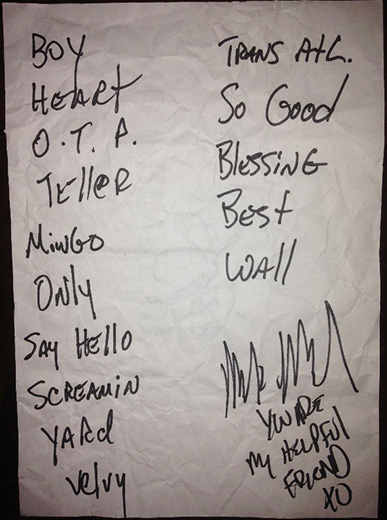 BOY
HEART
O.T.P.
TEllER
MINGO
Only
SAY HEllO
SCREAMIN
YARd
velvy
TRANS AtL.
So Good
BlESSiNG
BESt
WAll
YOU ARE
MY HELPFUl
FRIEND
XO